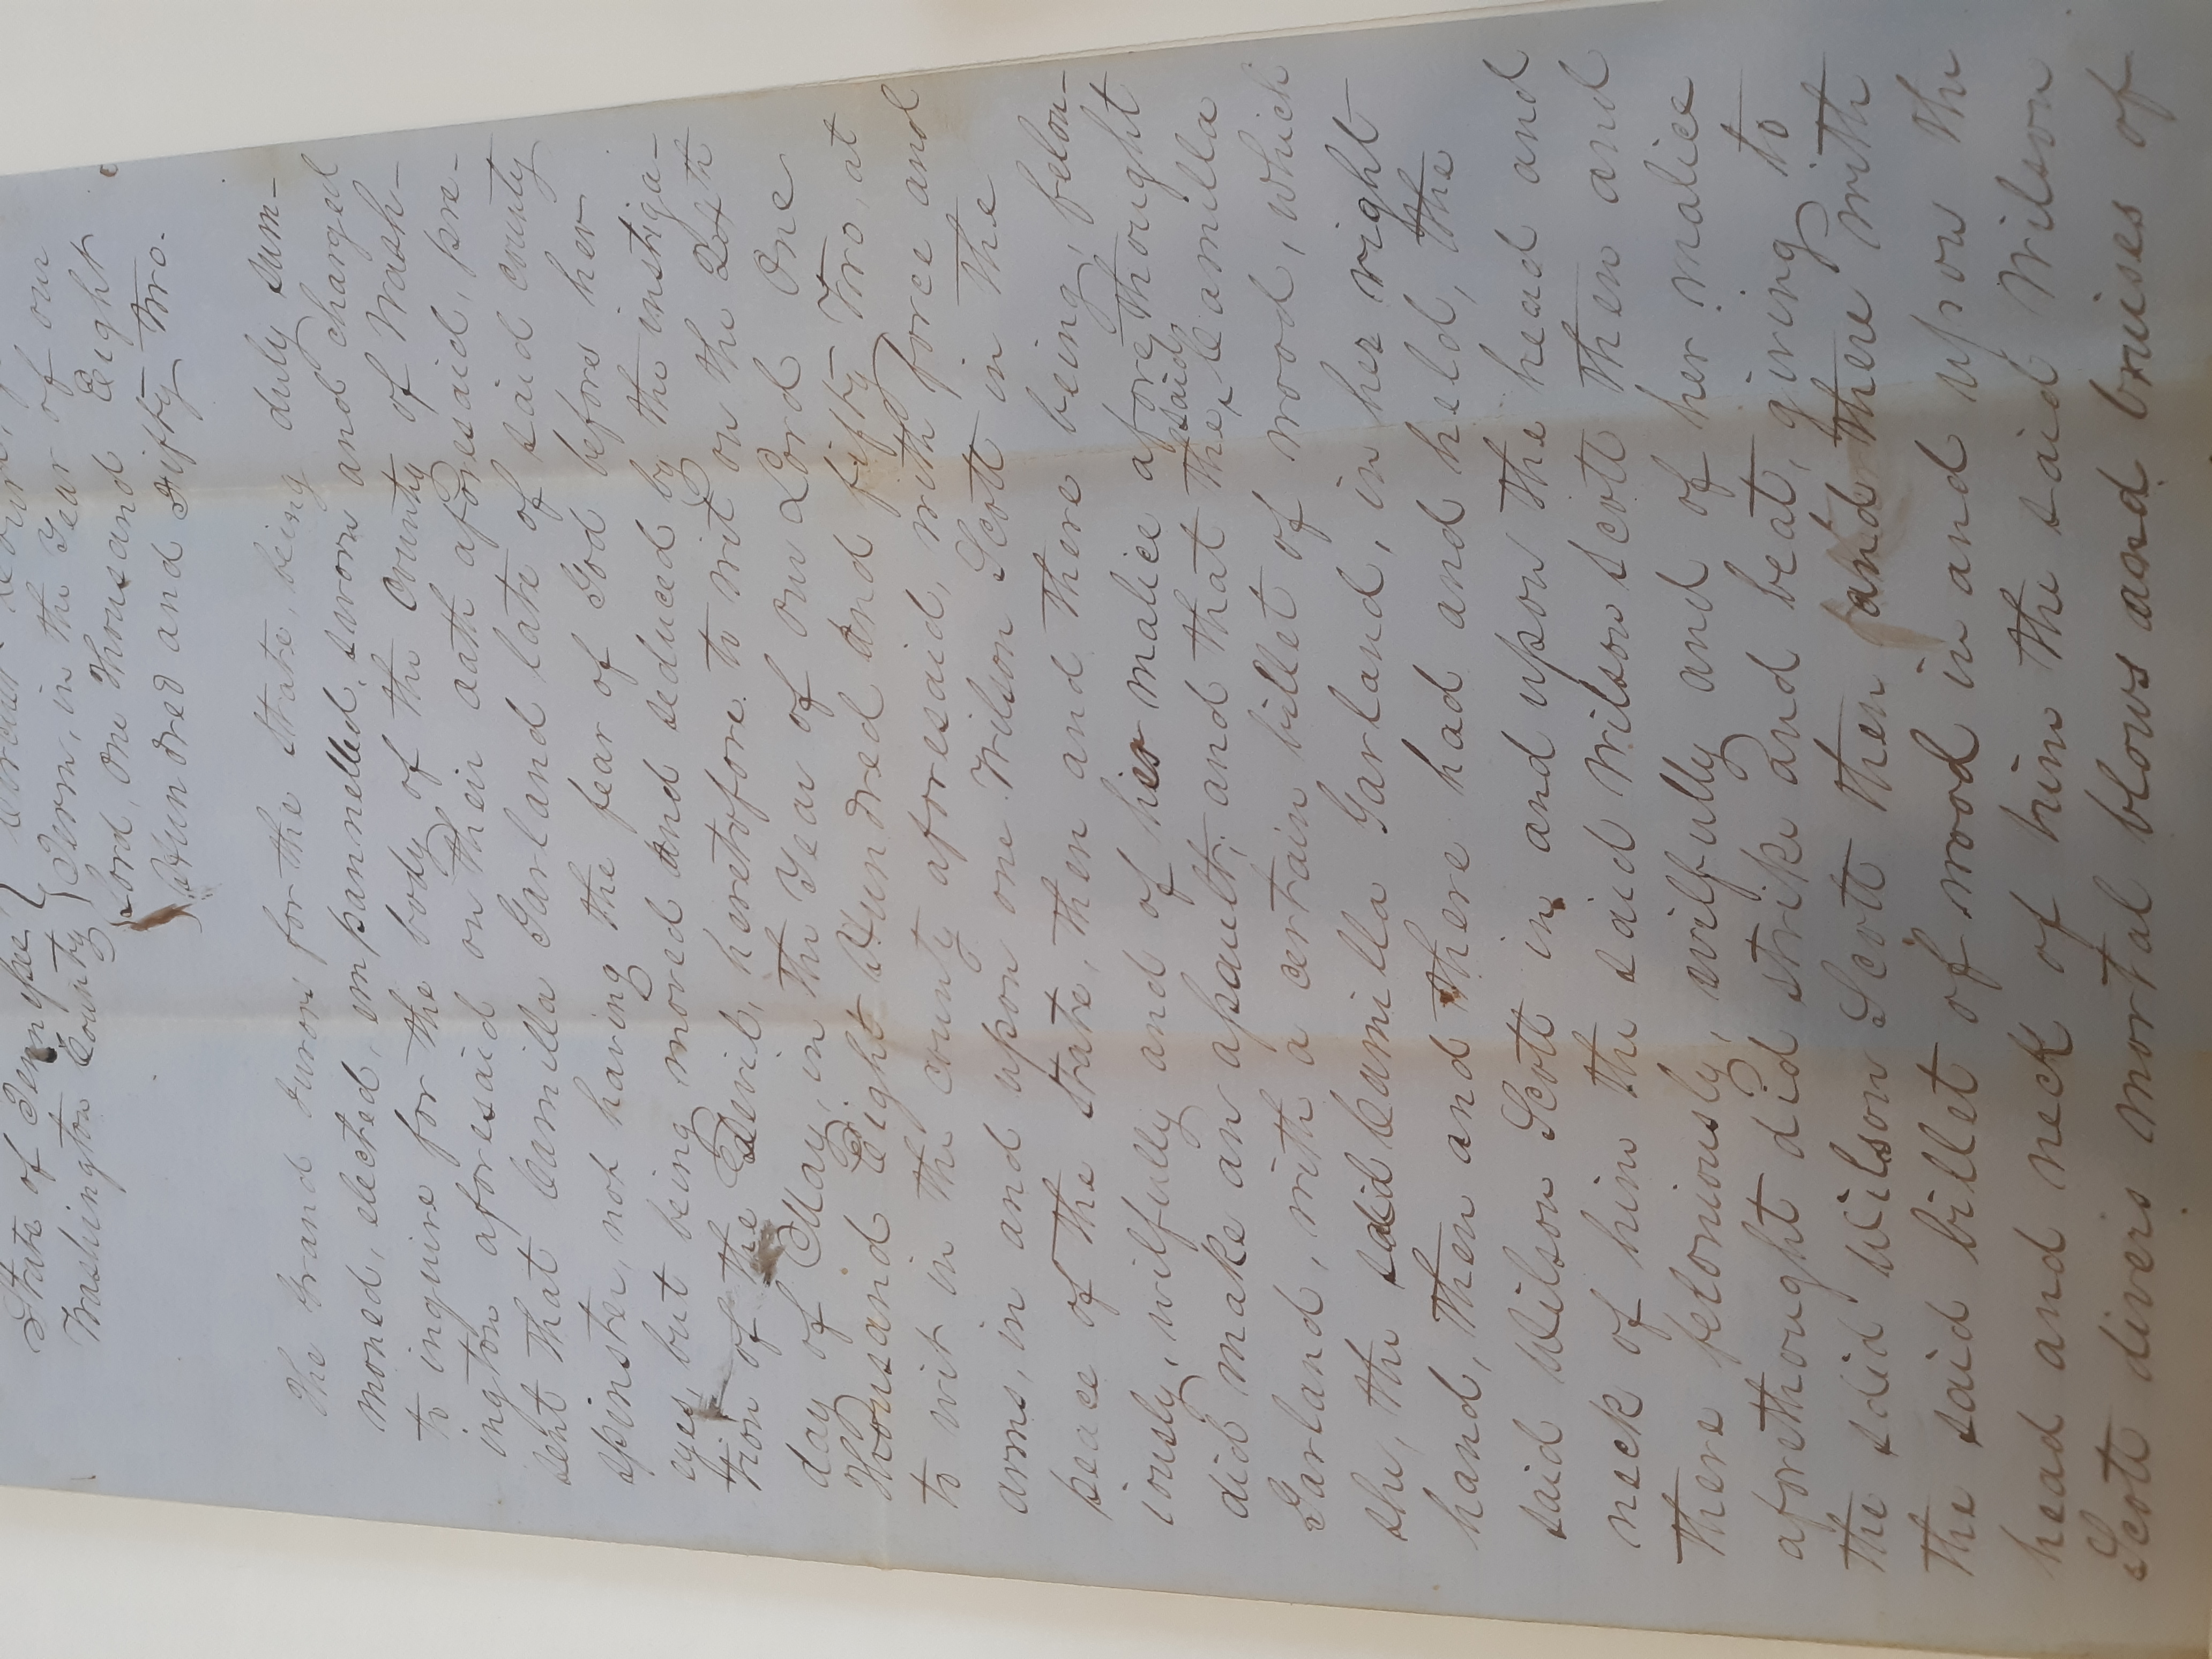 State of Tennessee } Circuit Court,
Washington County } Term, in the Year of our
Lord, One Thousand Eight
Hundred and Fifty Two.
The Grand Jurors for the State, being duly sum-
moned, elected, empannelled, sworn and charged
to inquire for the body of the County of Wash-
ington aforesaid on their oath aforesaid, pre-
sent that Camilla Garland late of said county
spinster, not having the fear of God before her
eyes, but being moved and seduced by the instiga-
tion of the Devil, heretofore to wit on the 24th
day of May, in the Year of our Lord One
Thousand Eight Hundred and fifty Two, at
to wit in the county aforesaid, with force and
arms, in and upon one Wilson Scott in the
peace of the State, then and there being, felon-
iously, wilfully and of her malice aforethought
did make an assault; and that the said Camilla
Garland, with a certain billet of wood, which
she, the said Camilla Garland, in her right
hand, then and there had and held, the
said Wilson Scott in and upon the head and
neck of him the said Wilson Scott then and
there feloniously, wilfully and of her malice
aforethought did strike and beat, giving to
the said Wilson Scott then and there with
the said billet of wood in and upon the
head and neck of him the said Wilson
Scott divers mortal blows and bruises of